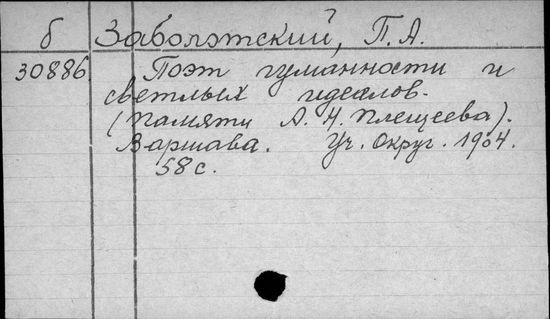 б Заболотский, П. А.
30886 Поэт гуманности и
светлых идеалов.
(Памяти А. Н. Плещеева).
Варшава. Уч. Округ. 1904.
58 с.